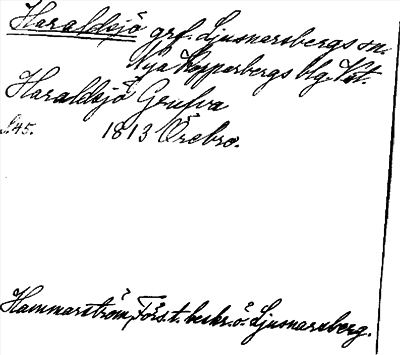 Haraldsjö grf. Ljusnarsbergs sn.
Nya Kopparbergs blg. Vst.
Haraldsjö Grufva
S. 45. 1813 Örebro.
Hammarström, Förs. t. beskr. ö. Ljusnarsberg.